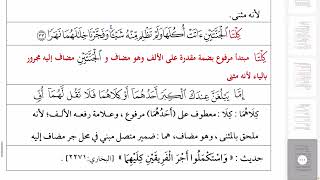 لأنه مثنى.
كِلْتَا الْجَنَّتَيْنِ ءَاتَتْ أُكُلَهَا وَلَمْ تَظْلِم مِّنْهُ شَيْئًا وَفَجَّرْنَا خِلَالَهُمَا نَهَرًا ﴿٣٣﴾
كِلْتَا مبتدأ مرفوع بضمة مقدرة على الألف وهو مضاف و الْجَنَّتَيْنِ مضاف إليه مجرور
بالياء لأنه مثنى
إِمَّا يَبْلُغَنَّ عِندَكَ الْكِبَرَ أَحَدُهُمَا أَوْ كِلَاهُمَا فَلَا تَقُل لَّهُمَا أُفٍّ
كِلَاهُمَا: كِلَا: معطوف على (أَحَدُهُمَا) مرفوع ، وعلامة رفعه الألف؛ لأنه
ملحق بالمثنى ، وهو مضاف، هما : ضمير متصل مبني في محل جر مضاف إليه
حديث : « وَاسْتَكْمَلُوا أَجْرَ الْفَرِيقَيْنِ كِلَيْهِمَا » [البخاري: ٢٢٧١].